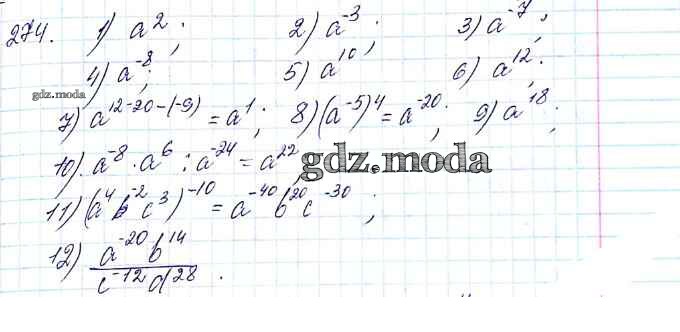 274. 1) a²; 2) a⁻³; 3) a⁻⁷;
4) a⁻⁸; 5) a¹⁰; 6) a¹²;
gdz.moda
7) a¹²⁻²⁰⁻⁽⁻⁹⁾ = a¹; 8) (a⁻⁵)⁴ = a⁻²⁰; 9) a¹⁸;
10) a⁻⁸ · a⁶ : a⁻²⁴ = a²²;
gdz.moda
11) (a⁴ b⁻² c³)⁻¹⁰ = a⁻⁴⁰ b²⁰ c⁻³⁰;
12) a⁻²⁰ b¹⁴
c⁻¹² d²⁸.